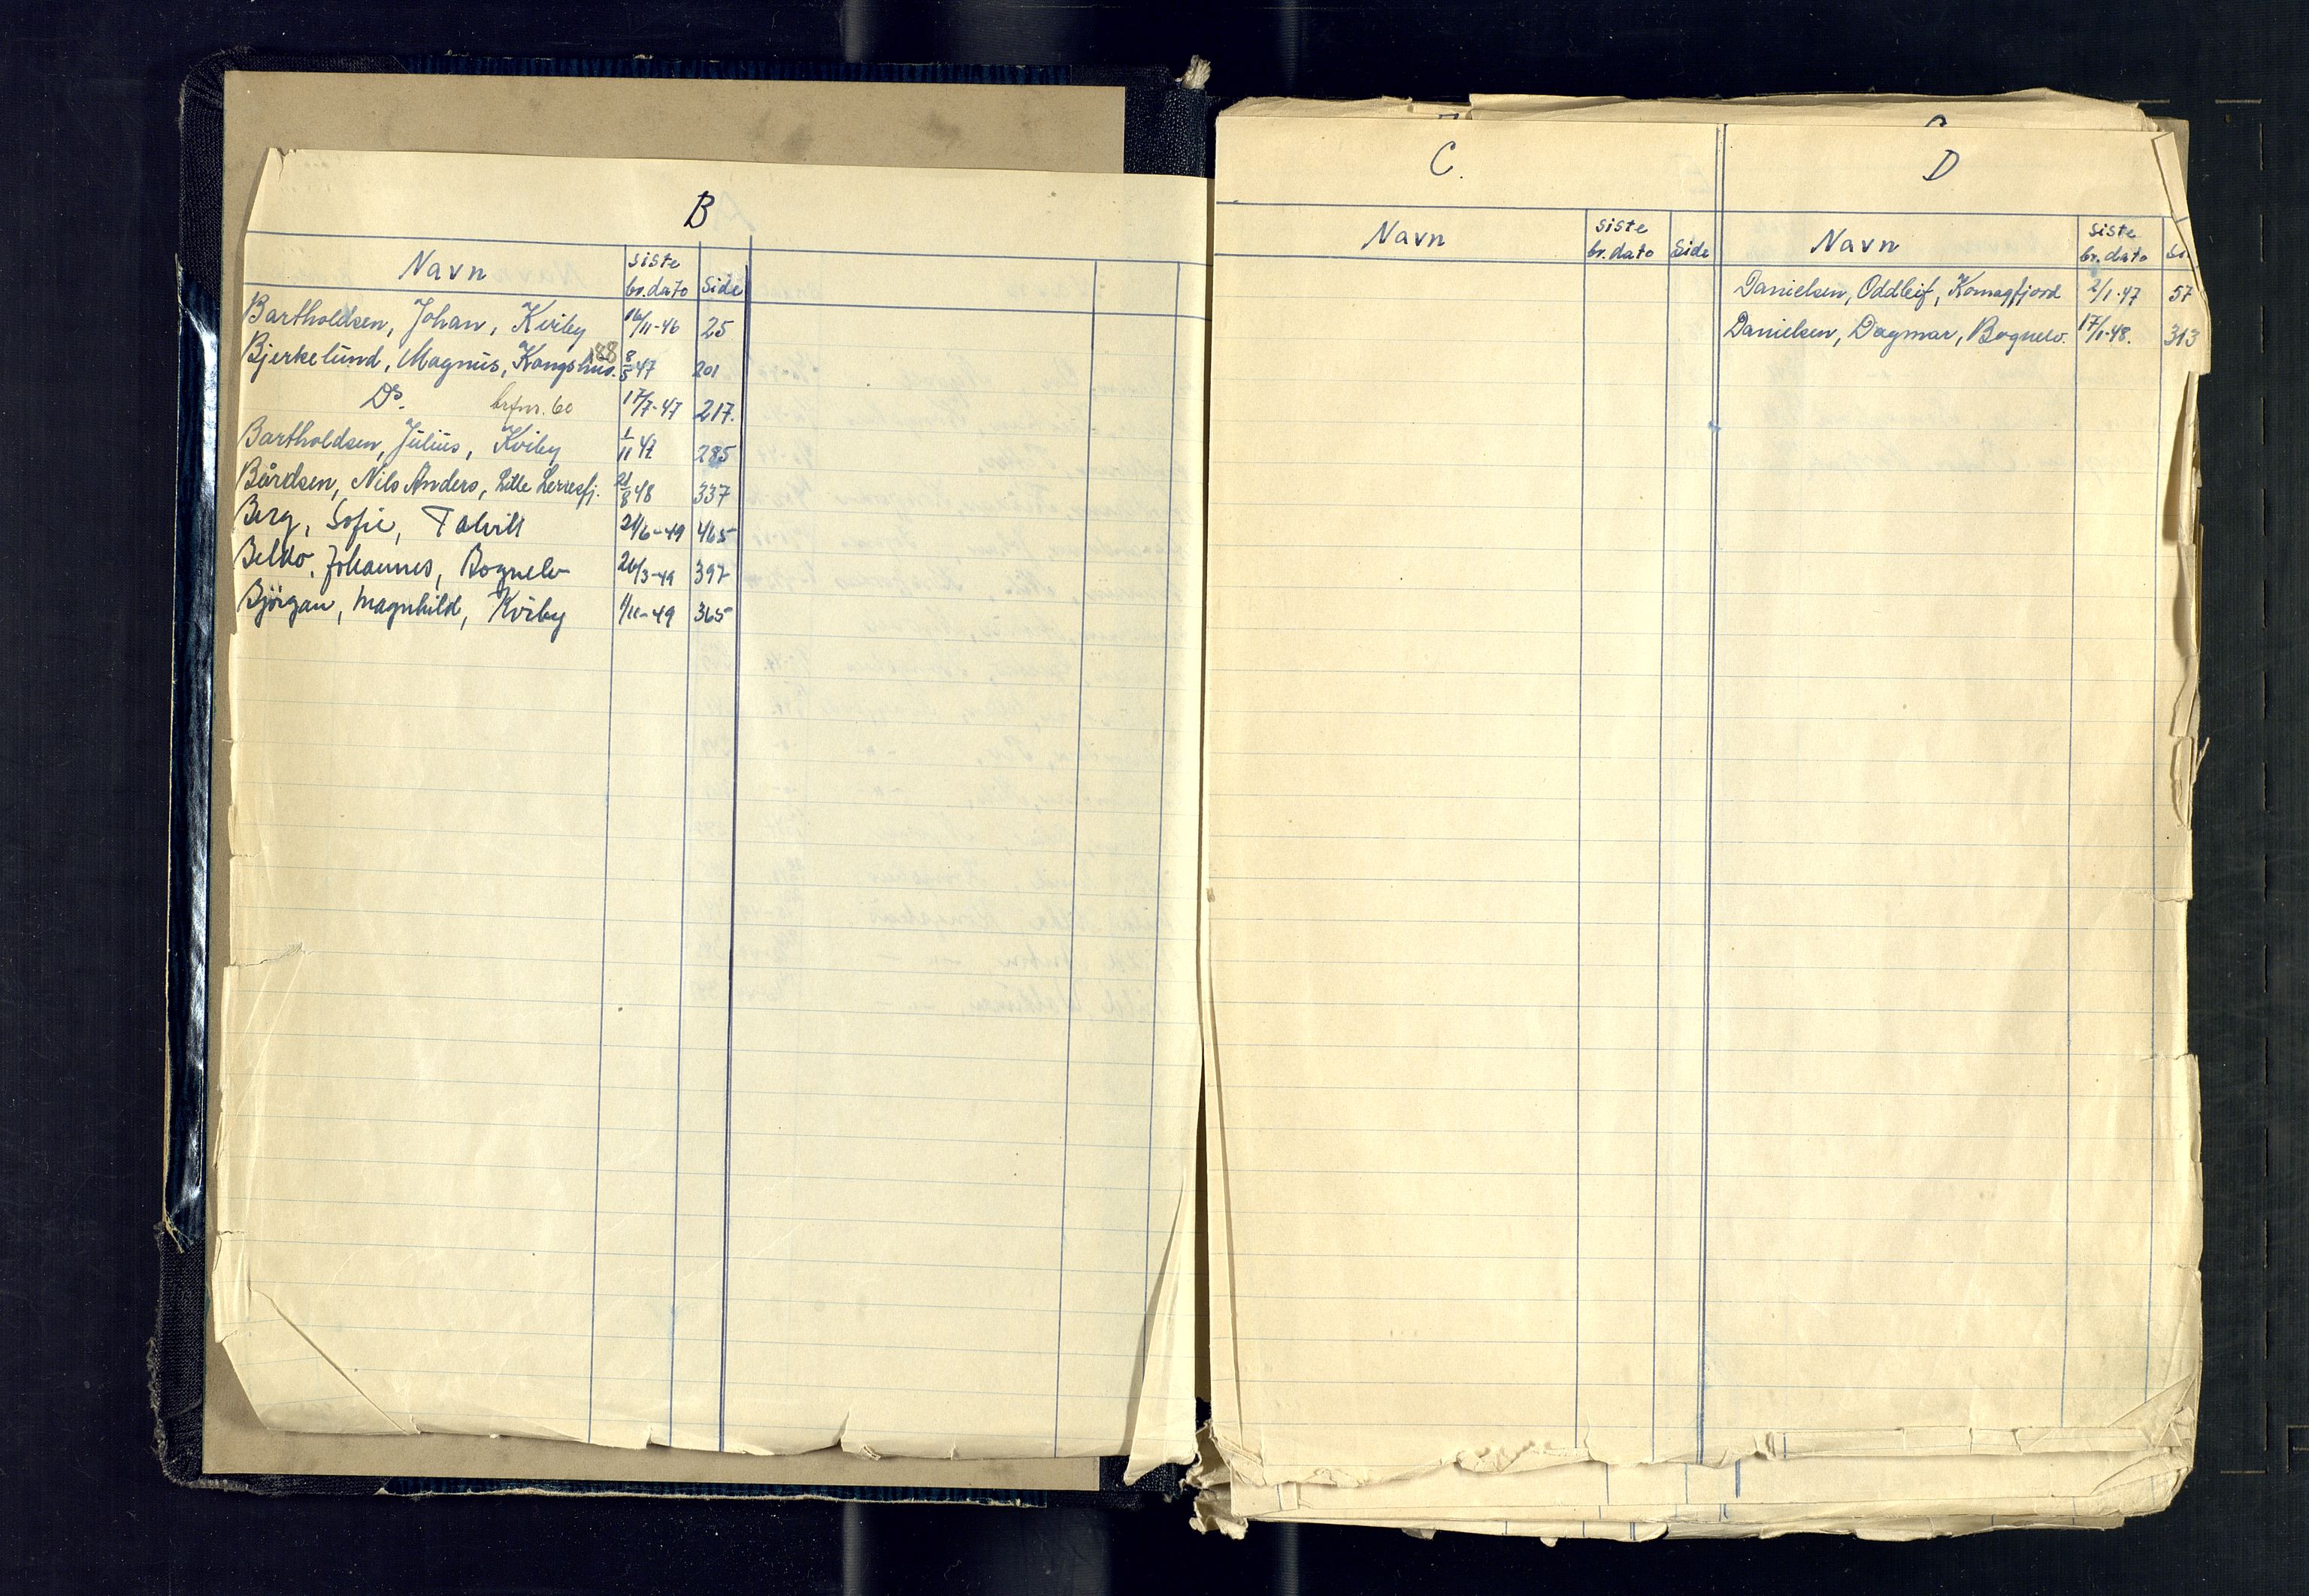 B
Navn siste br.dato Side
Bartholdsen, Johan, Kviby 16/11-46 25
Bjerkelund, Magnus, Kongshus. 88 8/5 47 201
Do. brfnr. 60 17/7-47 217.
Bartholdsen, Julius, Kviby 1/11 47. 285
Bårdsen, Nils Anders, Lille Lerresfj. 21/8 48 337
Berg, Sofie, Talvik 21/6-49 465
Johannes, Bognelv 26/3-49 397
Björgan, Magnhild, Kviby 1/11-49 365
C.
Navn siste br.dato Side
D
Navn siste br.dato Si
Danielsen, Oddleif, Komagfjord 2/1-47 57
Danielsen, Dagmar, Bognelv. 17/1-48. 313